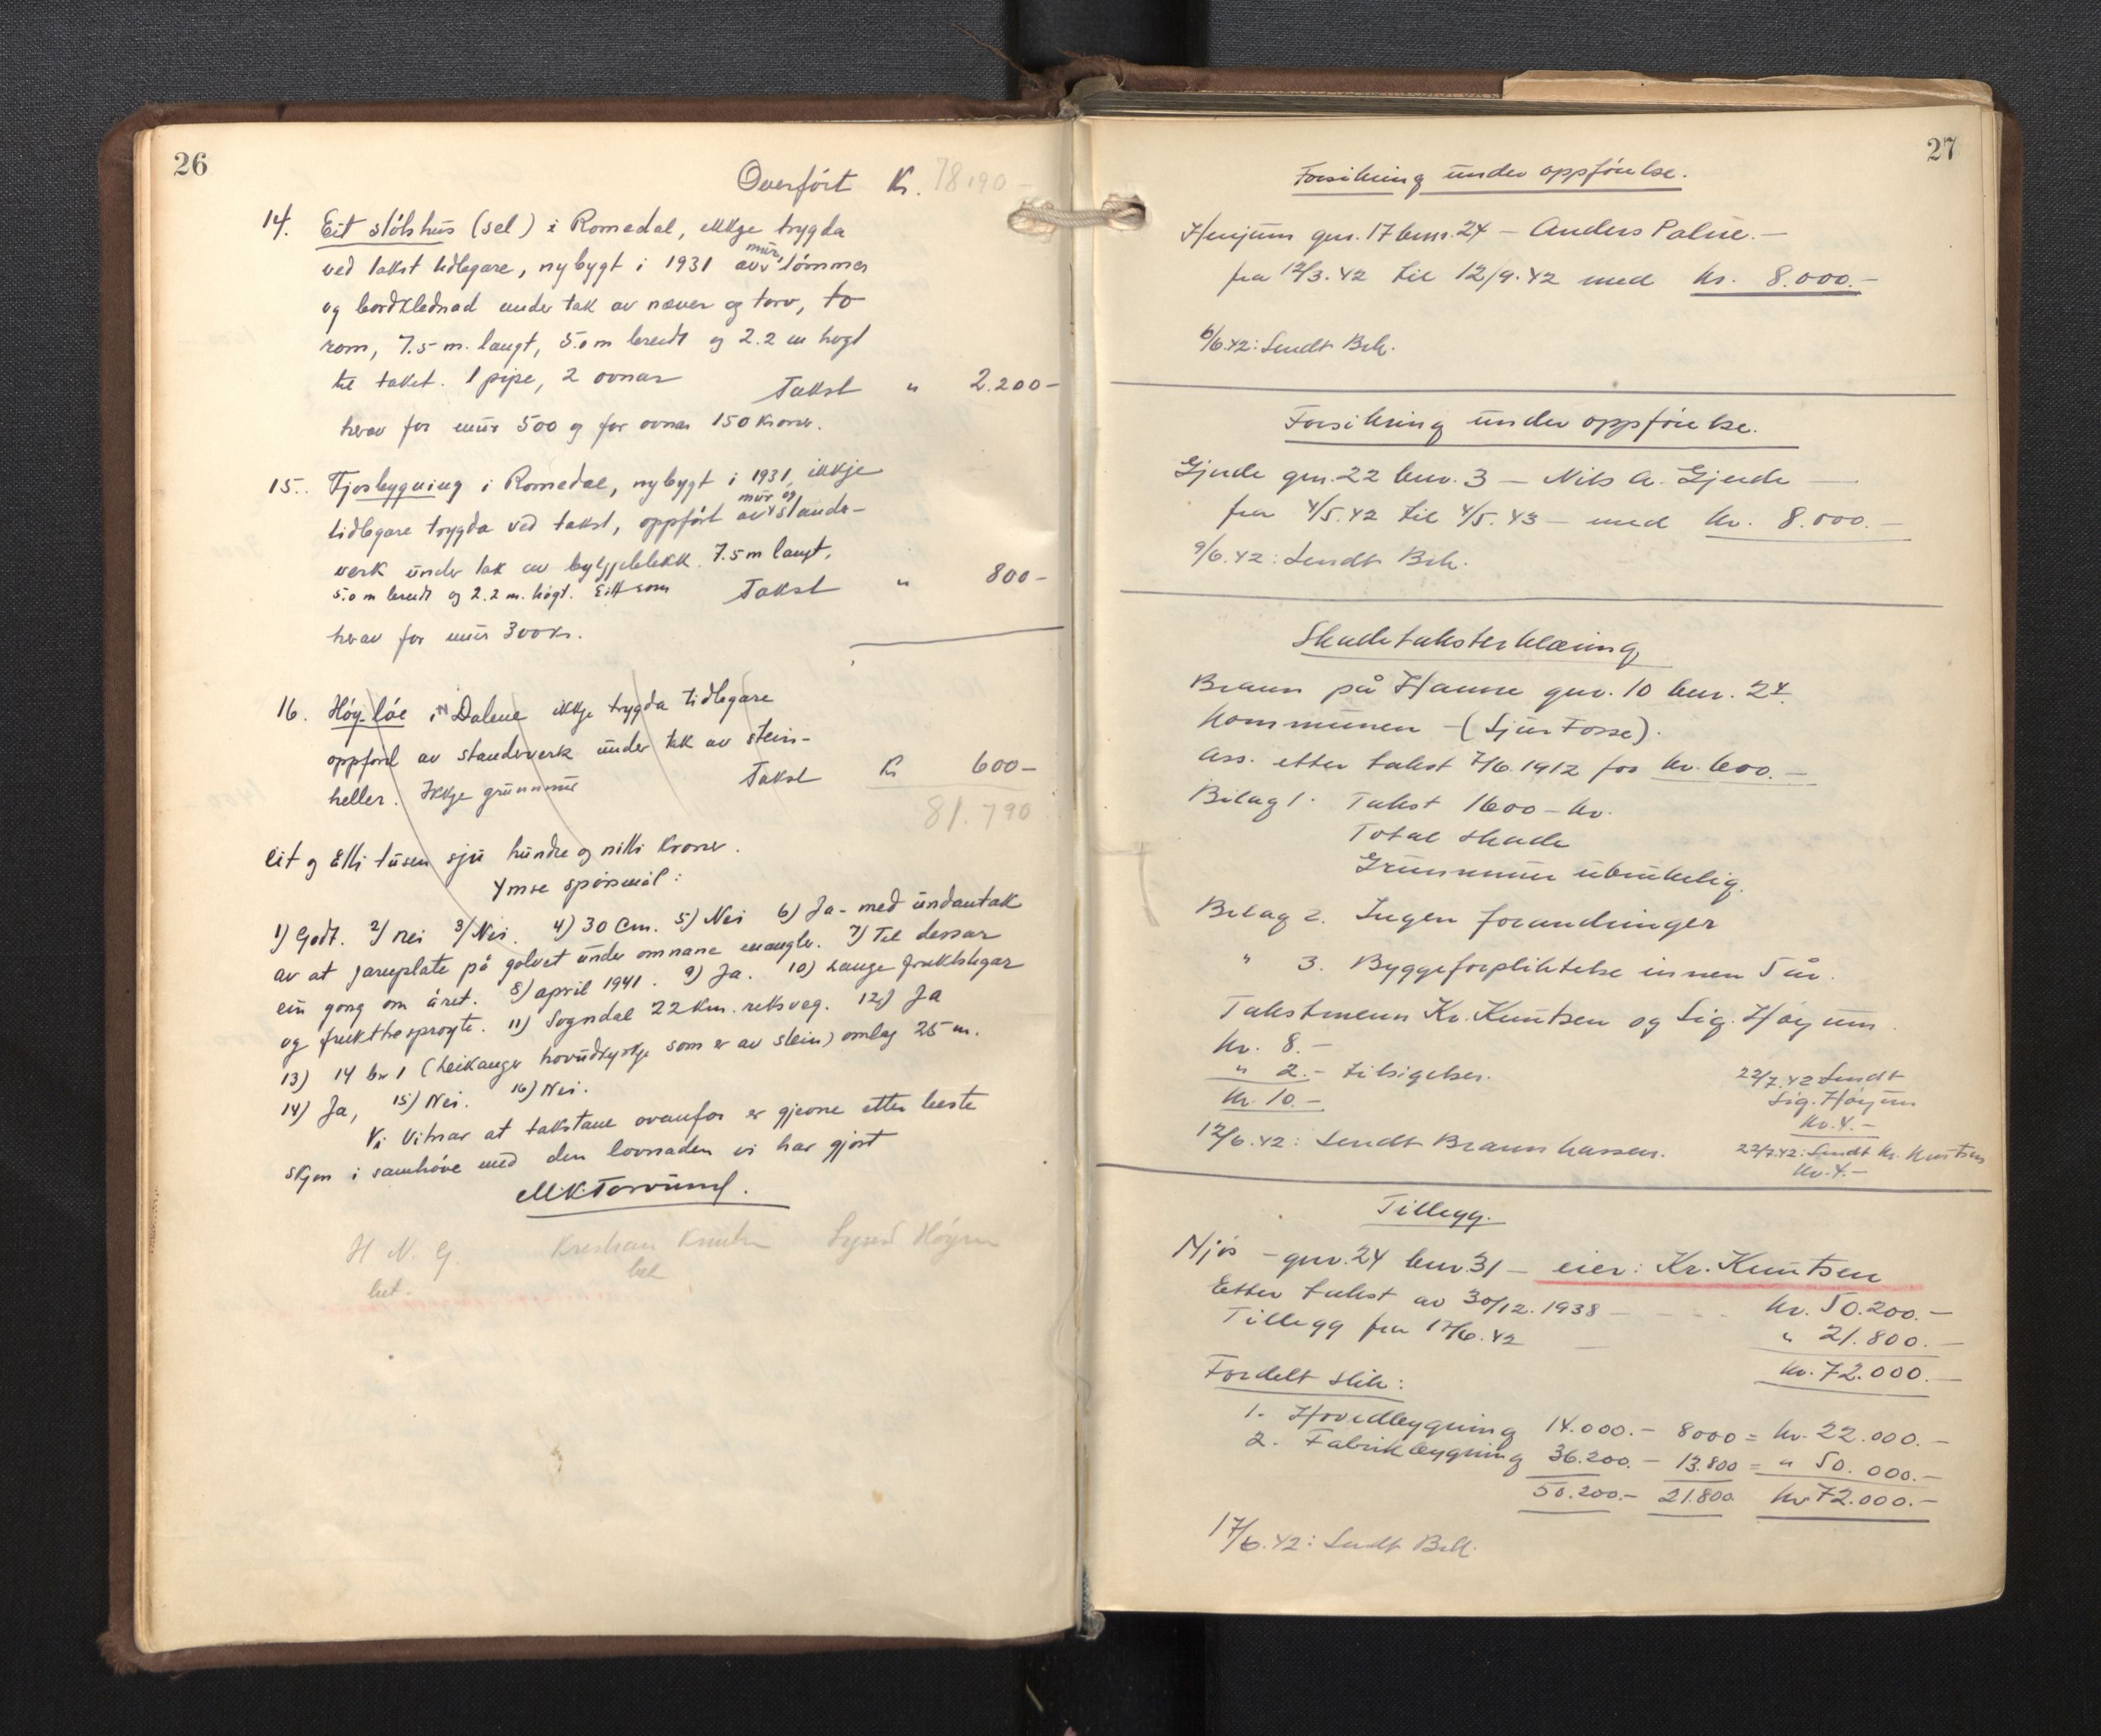 26
Overfört Kr. 78190-
14. Eit stölshus (sel) i Romedal, ikkje trygda
ved takst tidlegare, nybygt i 1931 av mur, tömmer
og bordklednad under tak av næver og torv, to
rom, 7.5 m. langt, 5.0 m breidt og 2.2 m högt
til taket. 1 pipe, 2 ovnar Takst " 2.200-
herav for mur 500 og for ovnar 150 kroner.
15. Fjosbygning i Romedal, nybygt i 1931, ikkje
tidlegare trygda ved takst, oppfört av mur og stander-
verk under tak av bylgjeblekk. 7.5 m langt,
5.0 m breidt og 2.2 m. högt. Eitt rom Takst " 800-
herav for mur 300 kr.
16. Höy-löe i Dalene ikkje trygda tidlegare
oppförd av standerverk under tak av stein-
heller. Ikkje grunnmur Takst Kr 600-
81.790
Eit og åtti tusen sju hundre og nitti kroner.
Ymse spörsmål:
1) Godt. 2) Nei 3) Nei. 4) 30 Cm. 5) Nei 6) Ja - med undantak
av at jarnplate på golvet under omnane manglr. 7) Til dessar
ein gong om året. 8) april 1941. 9) Ja. 10) Lange
og . 11) Sogndal 22 Km. reksveg. 12) Ja
13) 14 br 1 (Leikanger hovudkyrkje som er av stein) omlag 25 m.
14) Ja, 15) Nei. 16) Nei.
Vi vitnar at takstane ovanfor er gjevne etter beste
skjön i samhöve med den lovnaden vi har gjort
H N. G. Kristian Knutsen Sigurd Höyum
bet. bet
27
Forsikring under oppförelse.
Henjum gnr. 17 bnr. 24 - Anders Palue.-
fra 12/3.42 til 12/9.42 med kr. 8.000.-
6/6.42: Sendt Bek.
Forsikring under oppförelse.
Gjerde gnr. 22 bnr. 3 - Nils A. Gjerde -
fra 4/5.42 til 4/5.43 - med kr. 8.000.-
9/6.42: Sendt Bek.
Skadetaksterklæring
Brann på Hamre gnr. 10 bnr. 24.
Kommunen - (Sjur Fosse).
Ass. etter takst 7/6.1912 for kr. 600.-
Bilag 1. Takst 1600 - kr.
Total skade
Grunnmur ubrukelig.
Bilag 2. Ingen forandringer
" 3. Byggeforpliktelse innen 5 år.
Takstmenn Kr. Knutsen og Sig. Höyum.
kr. 8.-
" 2.- tilsigelser.
kr. 10.-
22/7.42 Sendt
Sig. Höyum
kr. 4.-
12/6.42: Sendt Brannkassen.
22/7.42: Sendt Kr. Knutsen
kr. 4.-
Tillegg.
Njös - gnr. 24 bnr. 31 - eier: Kr. Knutsen
Etter takst av 30/12.1938 - - - kr. 50.200.-
Tillegg fra 17/6.42 - " 21.800.-
kr. 72.000.-
Fordelt slik:
1. Hovedbygning 14.000.- 8000 = kr. 22.000.-
2. Fabrikbygning 36.200.- 13.800 = " 50.000.-
50.200.- 21.800 kr 72.000.-
17/6.42: Sendt Bek.